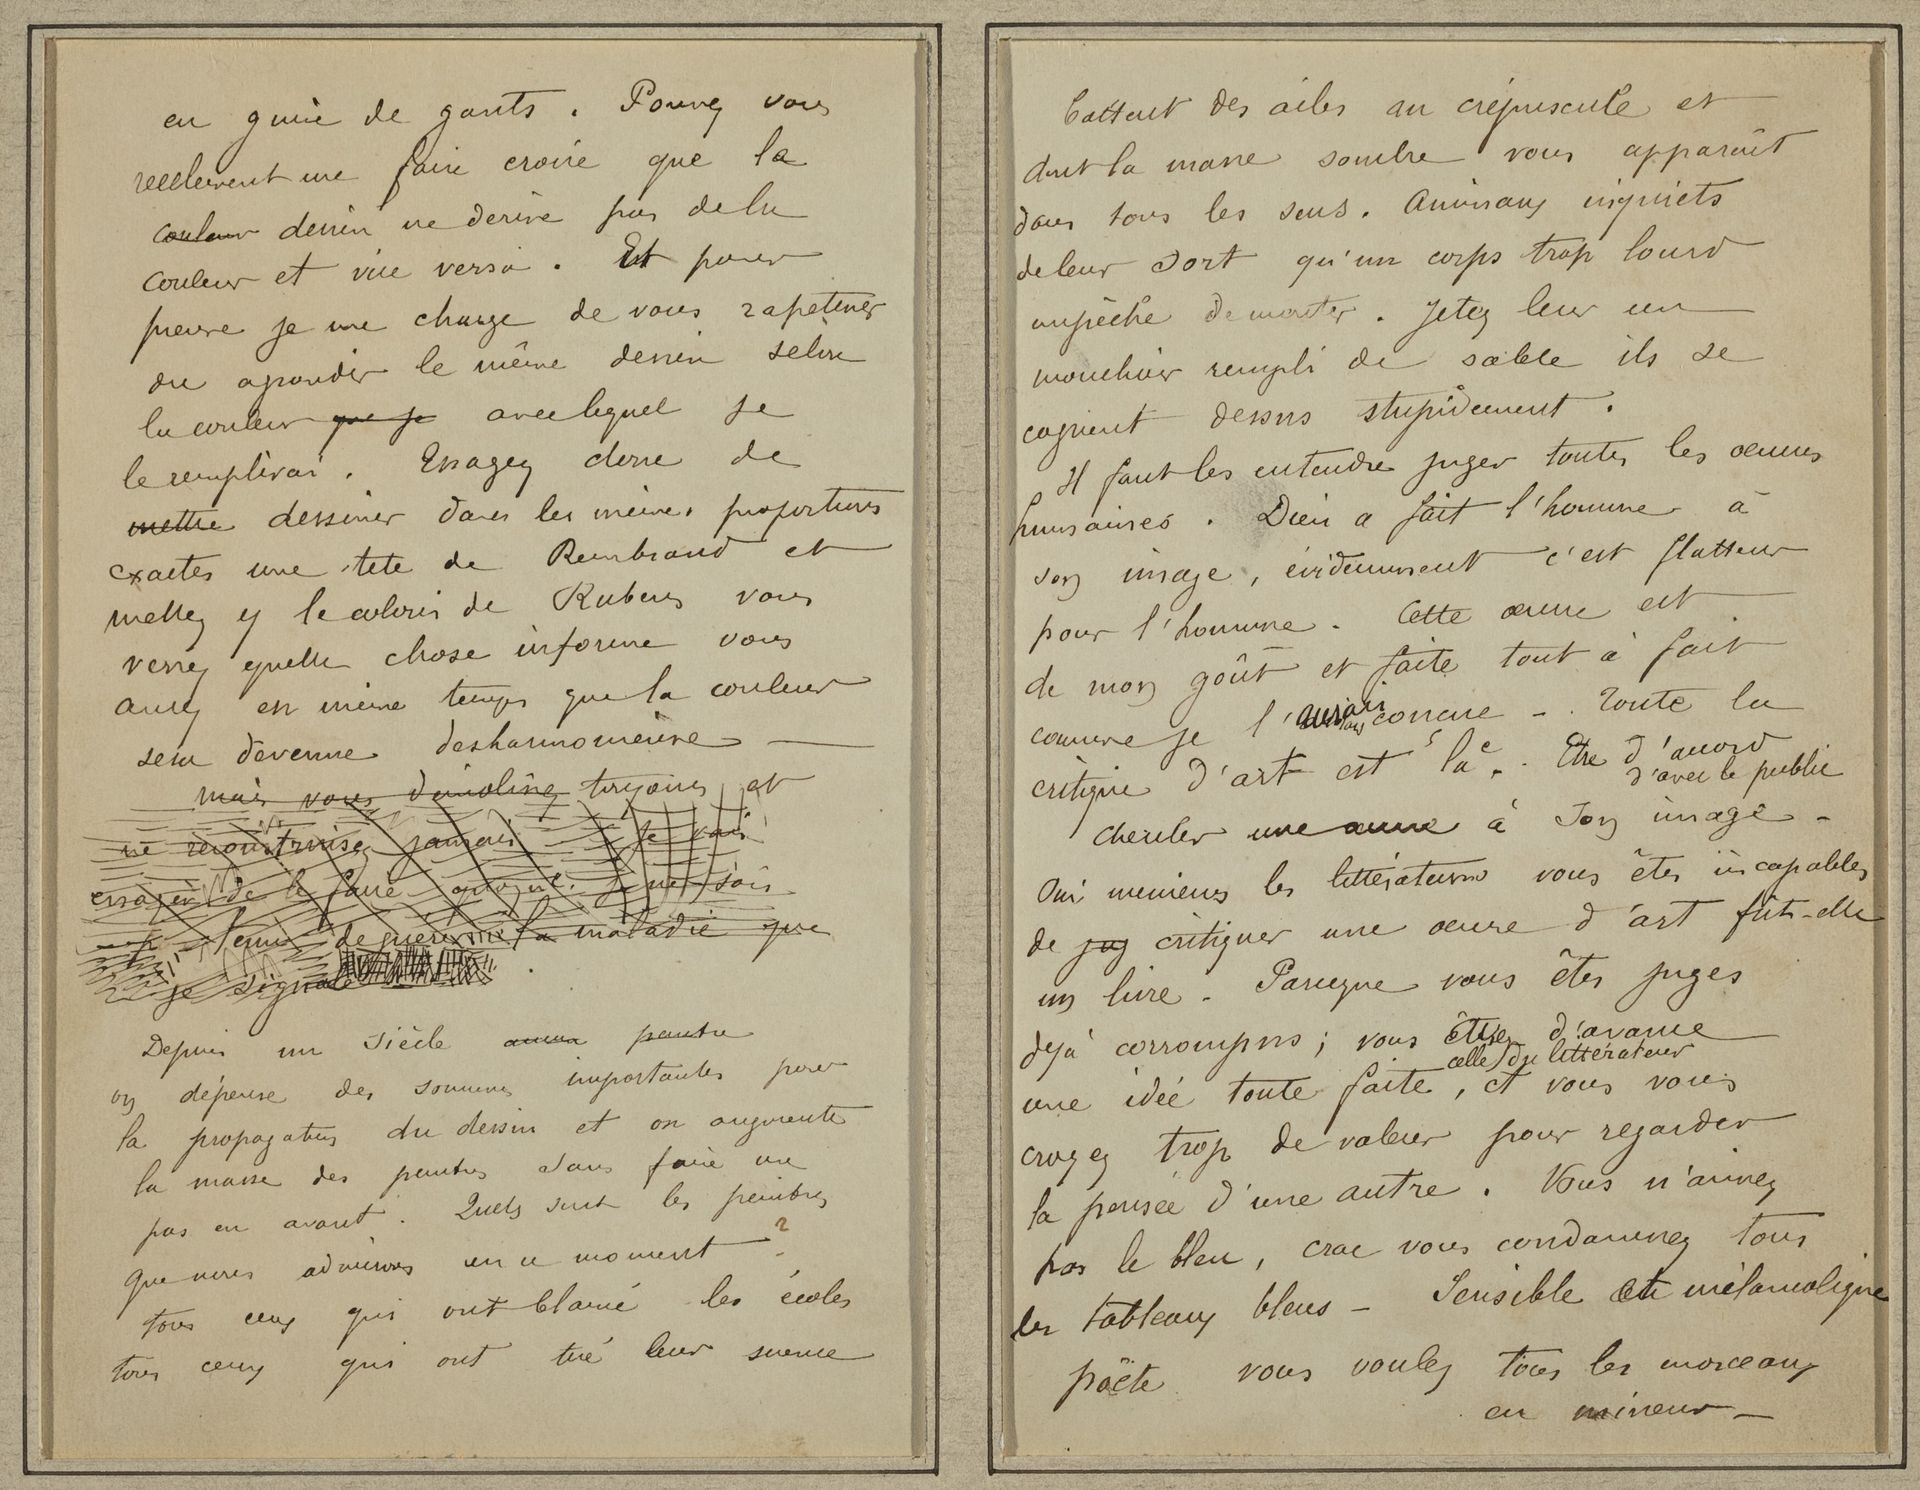 en guise de gants. Pouvez vous
reellement me faire croire que la
couleur dessin ne derive pas de la
couleur et vice versa. Et pour
preuve je me charge de vous rapetisser
ou agrandir le même dessin selon
la couleur que je avec lequel je
le remplirai. Essayez donc de
mettre dessiner dans les mêmes proportions
exactes une tete de Rembrand et
mettez y le coloris de Rubens vous
verrez quelle chose informe vous
aurez en même temps que la couleur
sera devenue desharmonieuse —
mais vous démolirez toujours et
ne reconstruisez jamais. Je vais
essayer de le faire
de guérir la maladie que
je signale
Depuis un siècle peintre
on dépense des sommes importantes pour
la propagation du dessin et on augmente
la masse des peintres sans faire un
pas en avant. Quels sont les peintres
que nous admirons en ce moment ?
tous ceux qui ont blamé les écoles
tous ceux qui ont tiré leur science
battent des ailes au crépuscule et
dont la masse sombre vous apparaît
dans tous les sens. Animaux inquiets
de leur sort qu'un corps trop lourd
empêche de monter. Jetez leur un
mouchoir rempli de sable ils se
cognent dessus stupidement.
Il faut les entendre juger toutes les œuvres
humaines. Dieu a fait l'homme à
son image, évidemment c'est flatteur
pour l'homme. Cette œuvre est
de mon goût et faite tout à fait
comme je l'aurais concue — Toute la
critique d'art est là. Etre d'accord
d'avec le public
chercher une œuvre à son image —
Oui messieurs les littérateurs vous êtes incapables
de jug critiquer une œuvre d'art fût-elle
un livre. Parceque vous êtes juges
dejà corrompus; vous d'avance
celle du littérateur
une idée toute faite, et vous vous
croyez trop de valeur pour regarder
la pensée d'une autre. Vous n'aimez
pas le bleu, crac vous condamnez tous
les tableaux bleus — Sensible et mélancolique
poëte vous voulez tous les morceaux
en mineur —